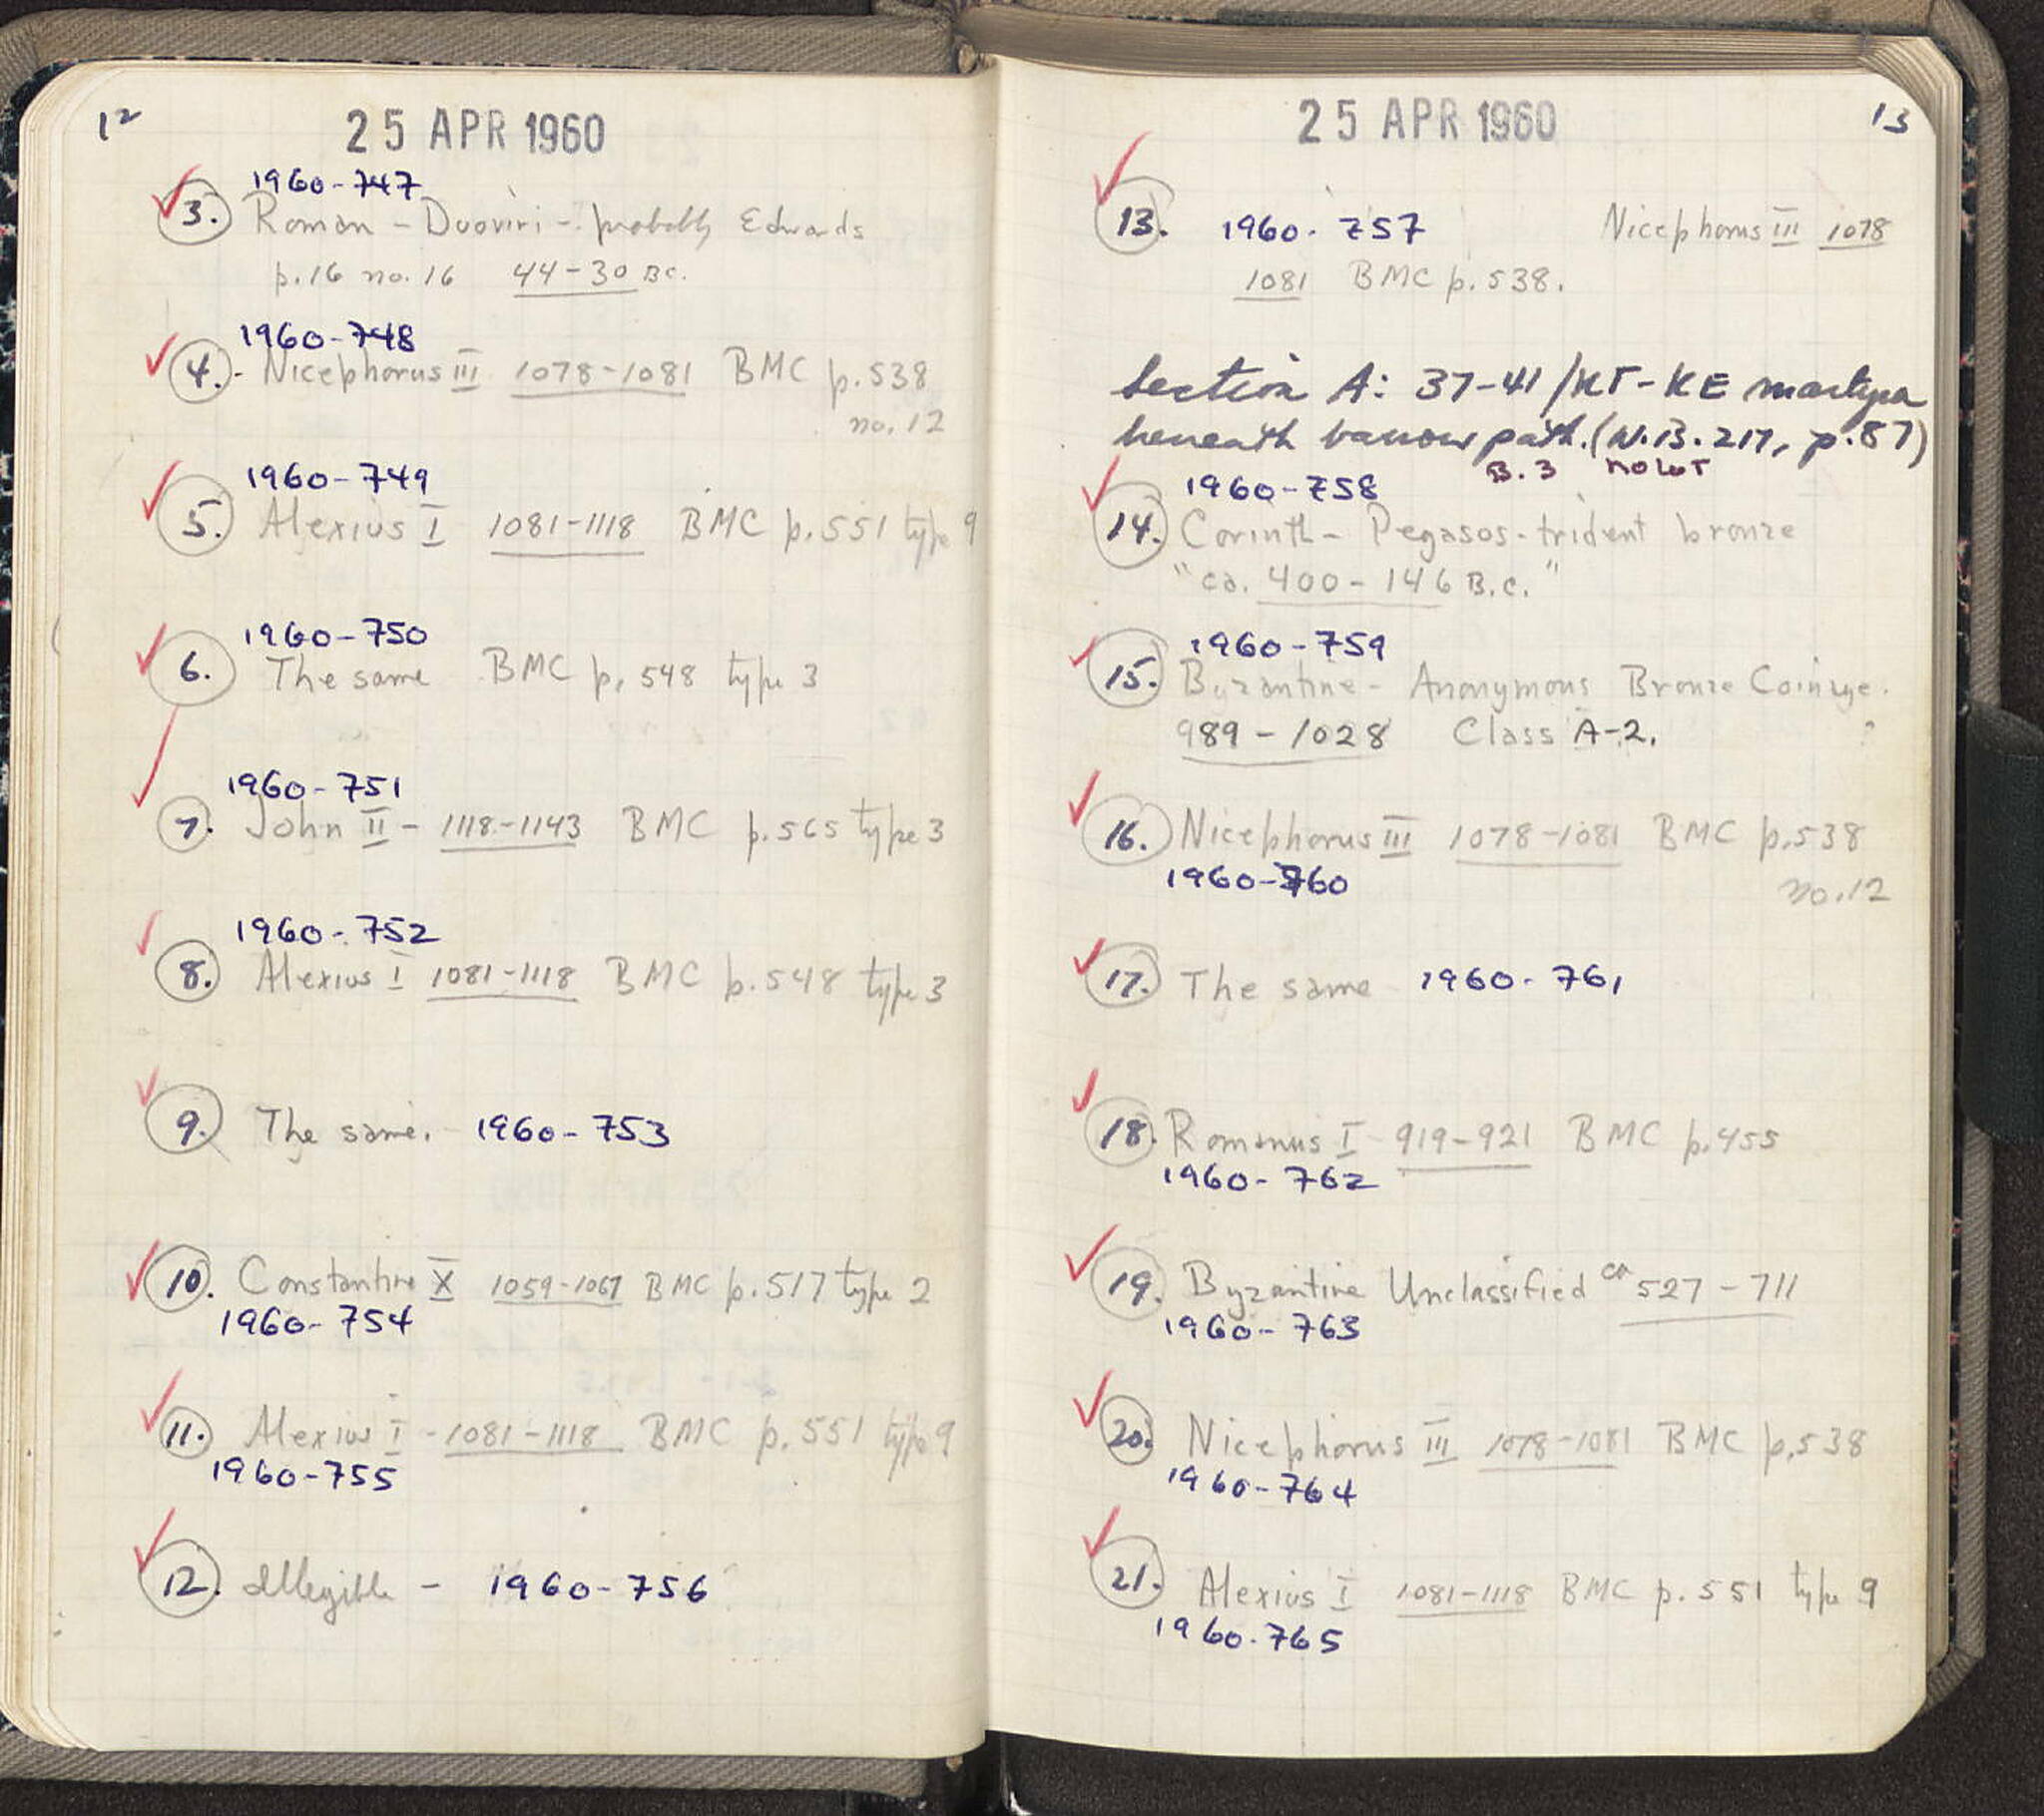 12
25 APR 1960
1960-747
3. Roman - Duoviri - probably Edwards
p.16 no. 16 44-30 BC.
1960-748
4. - Nicephorus III 1078-1081 BMC p.538
no.12
1960-749
5. Alexius I 1081-1118 BMC p.551 type 9
1960-750
6. The same BMC p. 548 type 3
1960-751
7. John II - 1118-1143 BMC p.565 type 3
1960-752
8. Alexius I 1081-1118 BMC p.548 type 3
9. The same. 1960-753
10. Constantine X 1059-1067 BMC p.517 type 2
1960-754
11. Alexius I - 1081-1118 BMC p. 551 type 9
1960-755
12. Illegible - 1960-756
13
25 APR 1960
13. 1960-757 Nicephorus III 1078
1081 BMC p.538.
Section A: 37-41/ΚΓ-ΚΕ martyra
beneath narrow path. (N.B. 217, p.87)
B.3 no lot
1960-758
14. Corinth - Pegasos-trident bronze
"ca. 400-146 B.C."
1960-759
15. Byzantine - Anonymous Bronze Coinage.
989-1028 Class A-2. ?
16. Nicephorus III 1078-1081 BMC p.538
1960-760
no.12
17. The same 1960-761
18. Romanus I 919-921 BMC p.455
1960-762
19. Byzantine Unclassified ca 527-711
1960-763
20. Nicephorus III 1078-1081 BMC p.538
1960-764
21. Alexius I 1081-1118 BMC p.551 type 9
1960-765